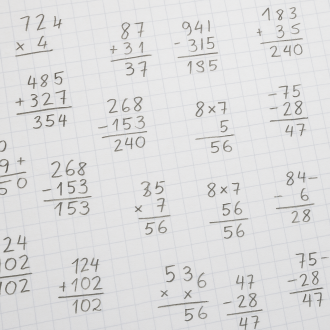 724
× 4
87
+31
37
941
- 315
185
183
+ 35
240
485
+327
354
268
-153
240
8×7
5
56
-75
-28
47
9+
50
268
-153
153
35
× 7
56
8×7
56
56
84-
- 6
28
24
102
102
124
+102
102
536
× ×
56
47
-28
47
75-
-28
47-